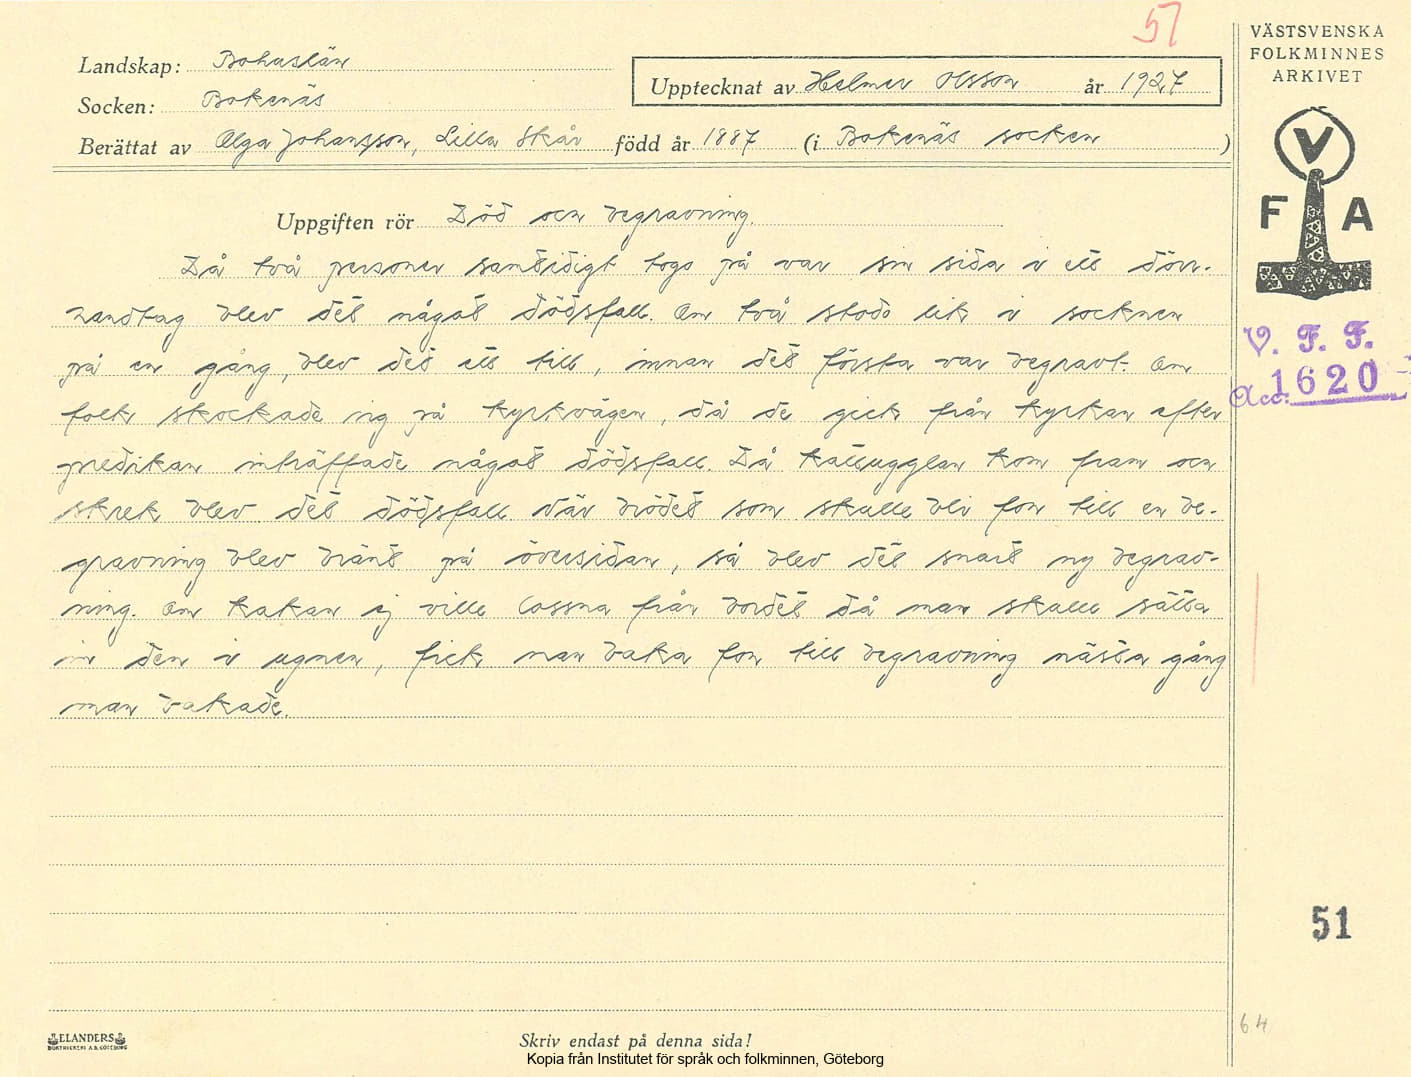 57
VÄSTSVENSKA
FOLKMINNES
ARKIVET
Landskap: Bohuslän
Upptecknat av Helmer Olsson år 1927
Socken: Bokenäs
Berättat av Olga Johansson, Lilla Skår född år 1887 (i Bokenäs socken )
V
F A
Uppgiften rör Död och begravning.
Då två personer samtidigt togo på var sin sida i ett dörr-
handtag blev det något dödsfall. Om två stodo lik i socknen
på en gång, blev det ett till, innan det första var begravt. Om
folk skockade sig på kyrkvägen, då de gick från kyrkan efter
predikan inträffade något dödsfall. Då kattugglan kom fram och
skrek blev det dödsfall. När brödet som skulle bli för till en be-
gravning blev bränt på översidan, så blev det snart ny begrav-
ning. Om kakan ej ville lossna från bordet då man skulle sätta
in den i ugnen, fick man baka för till begravning nästa gång
man bakade.
V. F. F.
Acc: 1620
51
64
ELANDERS
BOKTRYCKERI A.B. GÖTEBORG
Skriv endast på denna sida!
Kopia från Institutet för språk och folkminnen, Göteborg